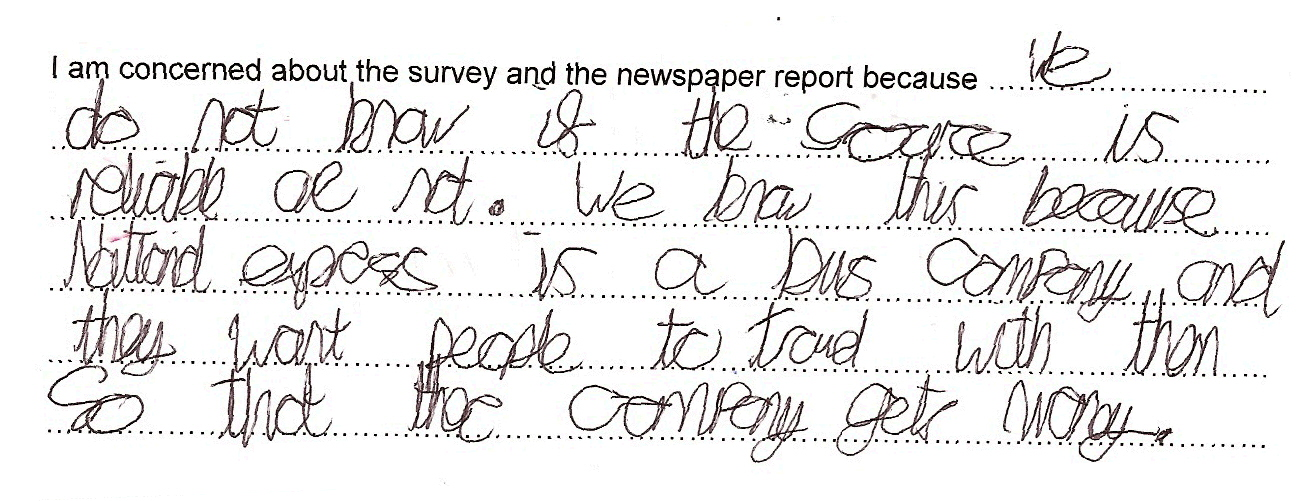 I am concerned about the survey and the newspaper report because We
do not know if the source is
reliable or not. We know this because
National express is a bus company and
they want people to travel with them
so that the company gets money.